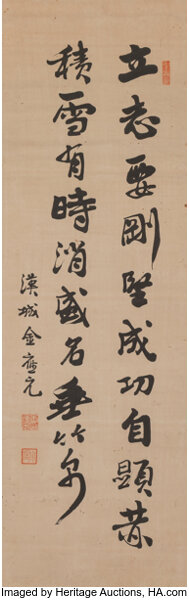 立志要剛堅成功自顯赫
積雪有時消盛名垂竹帛
漢城金應元
Imaged by Heritage Auctions, HA.com